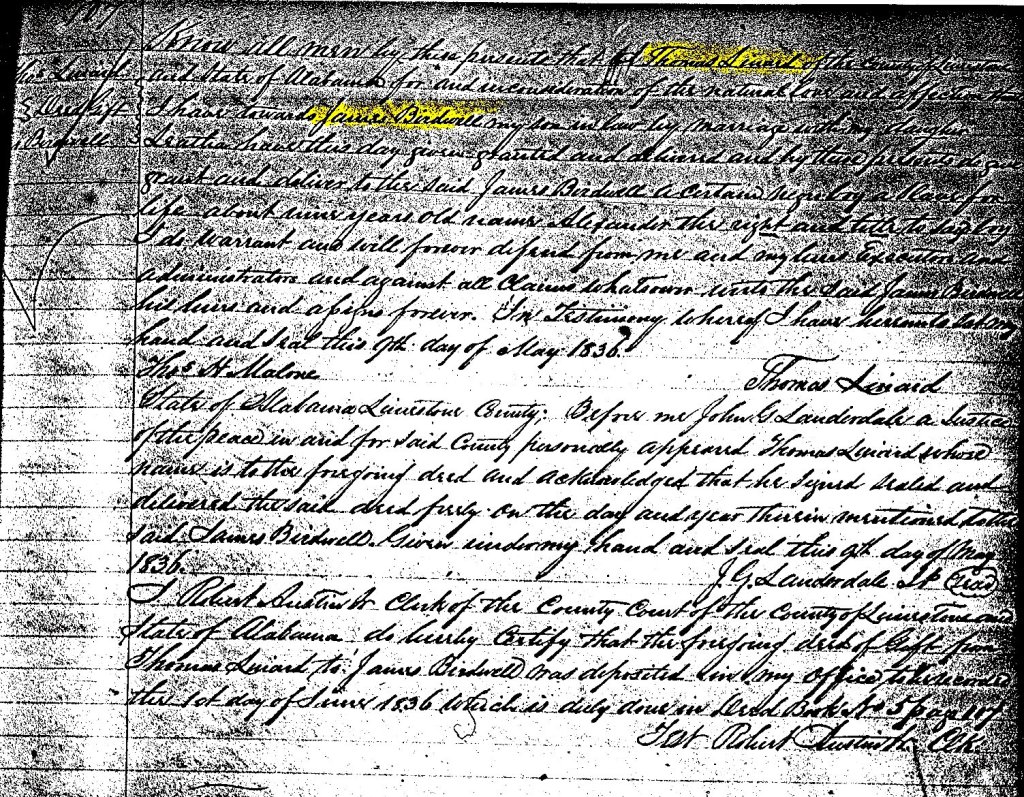 107
Know all men by these presents that I Thomas Liniard of the County of Limestone
Thos Liniard
and State of Alabama for and in consideration of the natural love and affection that
Deed Gift
I have towards James Birdwell my son in law by marriage with my daughter
Birdwell
Leatha have this day given granted and delivered and by these presents do give
grant and deliver to the said James Birdwell a certain negro boy a slave for
life about nine years old name Alexander the right and title to said boy
I do warrant and will forever defend from me and my heirs Executors and
administrators and against all Claims whatsoever unto the said James Birdwell
his heirs and assigns forever. In Testimony whereof I have hereunto set my
hand and seal this 9th day of May 1836.
Thos H Malone
Thomas Liniard
State of Alabama Limestone County; Before me John G Lauderdale a Justice
of the peace in and for said County personally appeared Thomas Liniard whose
name is to the foregoing deed and acknowledged that he signed sealed and
delivered the said deed freely on the day and year therein mentioned to the
said James Birdwell. Given under my hand and seal this 9th day of May
1836.
J. G. Lauderdale J.P. (Seal)
I Robert Austin Jr Clerk of the County Court of the County of Limestone and
State of Alabama do hereby Certify that the foregoing deed of Gift from
Thomas Liniard to James Birdwell was deposited in my office to be recorded
the 1st day of June 1836 Which is duly done in Deed Book No 5 page 107
Test Robert Austin Jr Clk.